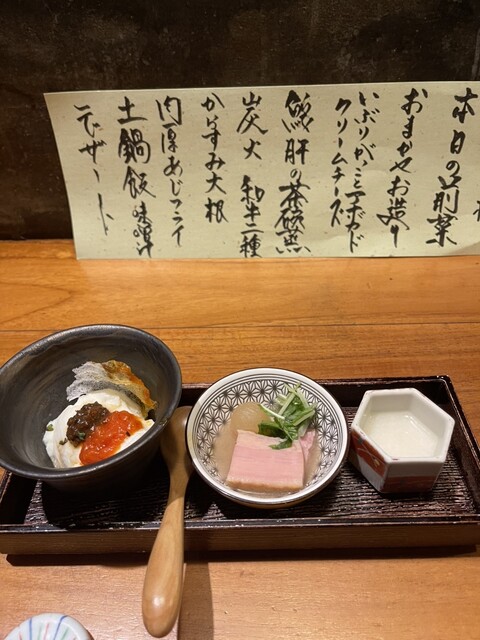 本日の前菜
おまかせお造り
いぶりがっことアボカド
クリームチーズ
鮟肝の茶碗蒸
炭火 和牛二種
からすみ大根
肉厚あじフライ
土鍋飯 味噌汁
デザート